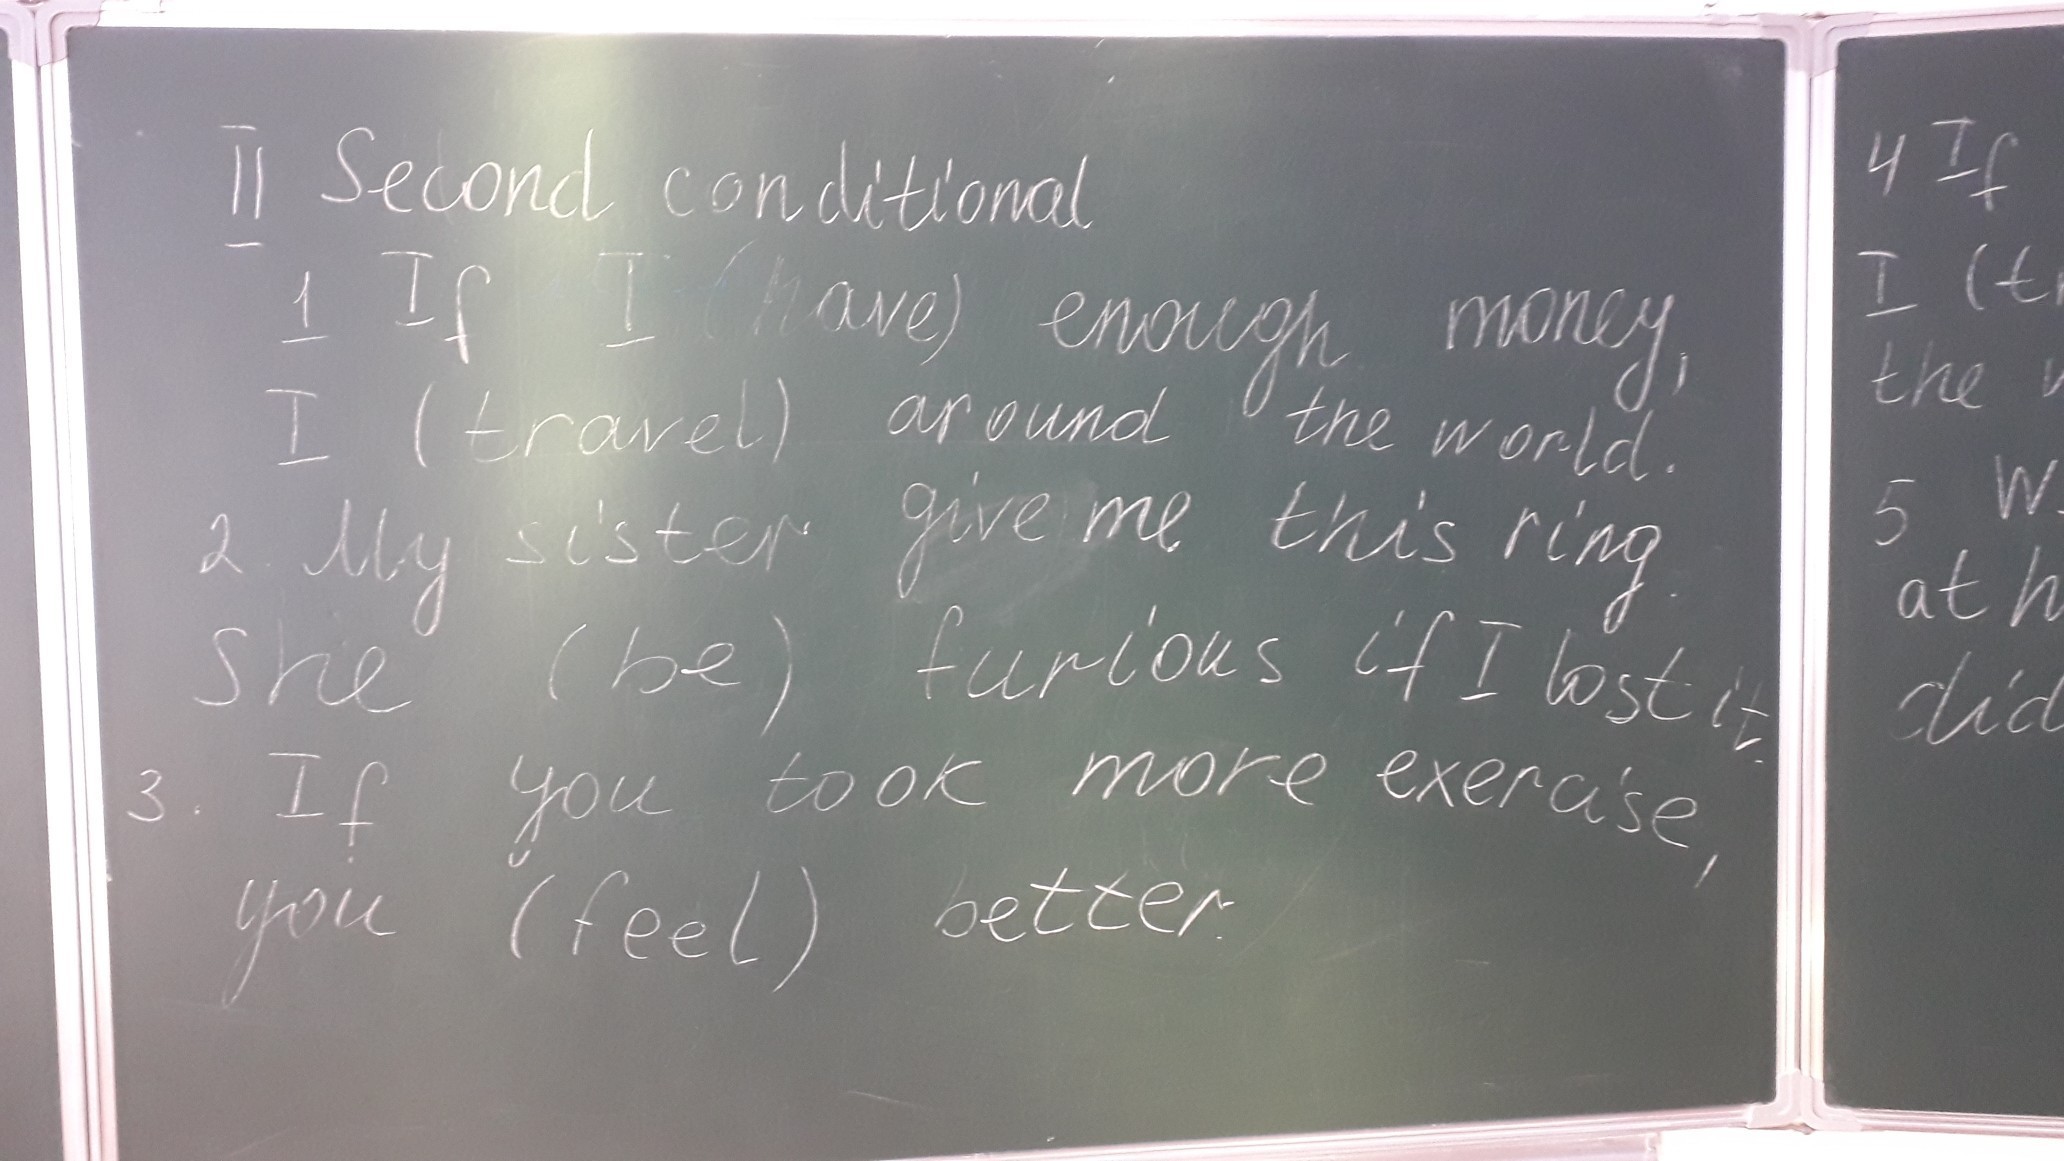 II Second conditional
1 If I (have) enough money,
I (travel) around the world.
2. My sister give me this ring.
She (be) furious if I lost it.
3. If you took more exercise,
you (feel) better.
4 If
I
the
5
at
did